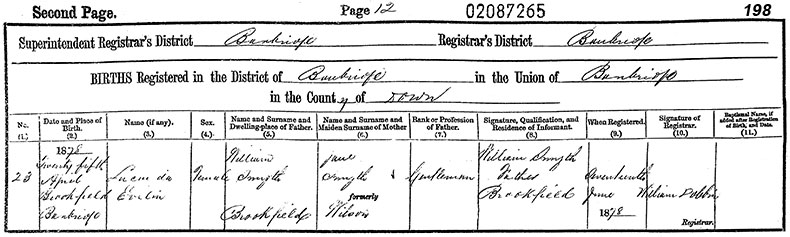 Second Page. Page 12 02087265 198
Superintendent Registrar's District Banbridge Registrar's District Banbridge
BIRTHS Registered in the District of Banbridge in the Union of Banbridge
in the County of Down
No. Date and Place of Birth. Name (if any). Sex. Name and Surname and Dwelling-place of Father. Name and Surname and Maiden Surname of Mother Rank or Profession of Father. Signature, Qualification, and Residence of Informant. When Registered. Signature of Registrar. Baptismal Name, if added after Registration of Birth, and Date.
(1.) (2.) (3.) (4.) (5.) (6.) (7.) (8.) (9.) (10.) (11.)
23
1878
Twenty fifth
April
Brookfield
Banbridge
Lucinda
Evelin
Female
William
Smyth
Brookfield
Jane
Smyth
formerly
Wilson
Gentleman
William Smyth
Father
Brookfield
Seventeenth
June
1878
William Dobbin
Registrar.